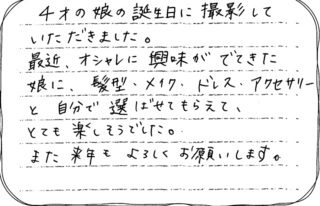 4才の娘の誕生日に撮影して
いただきました。
最近、オシャレに興味がでてきた
娘に、髪型・メイク・ドレス・アクセサリー
と自分で選ばせてもらえて、
とても楽しそうでした。
また来年もよろしくお願いします。